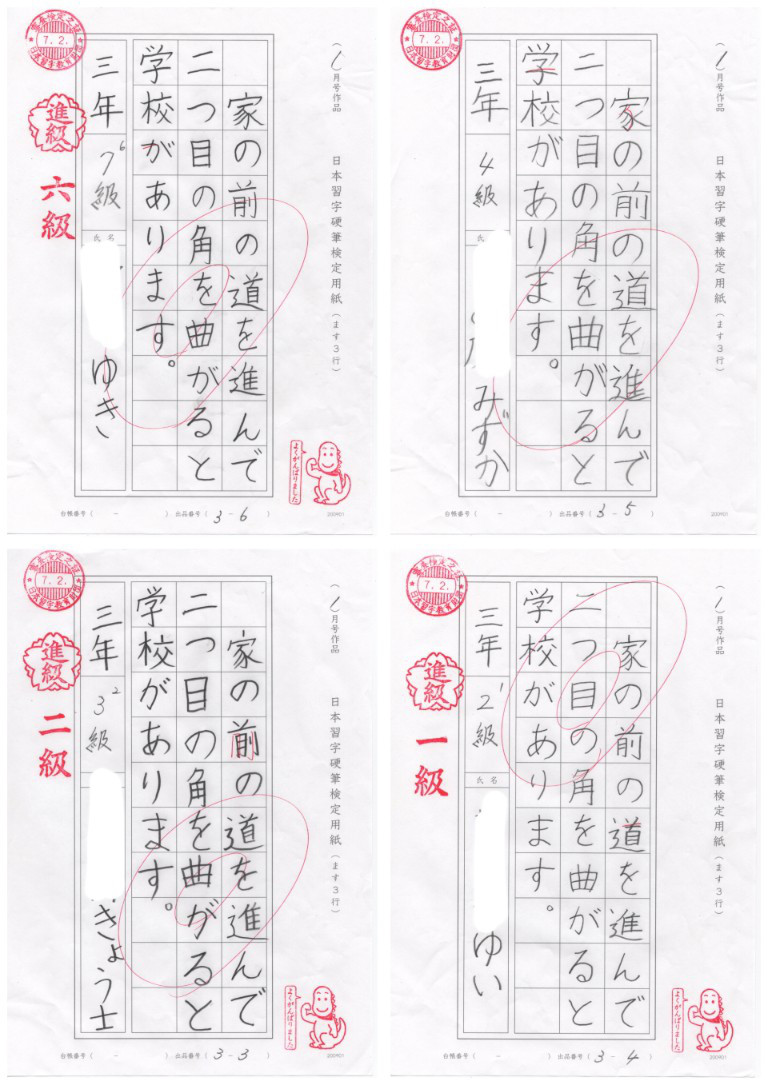 (1)月号作品
日本習字硬筆検定用紙(ます3行)
家の前の道を進んで
二つ目の角を曲がると
学校があります。
三年
7 6 級
氏名
ゆき
7.2.
日本習字教育財団
進級
六級
よくがんばりました
台帳番号( - ) 出品番号( 3 - 6 )
200901
(1)月号作品
日本習字硬筆検定用紙(ます3行)
家の前の道を進んで
二つ目の角を曲がると
学校があります。
三年
4級
氏
みずか
7.2.
日本習字教育財団
台帳番号( - ) 出品番号( 3 - 5 )
200901
(1)月号作品
日本習字硬筆検定用紙(ます3行)
家の前の道を進んで
二つ目の角を曲がると
学校があります。
三年
3 2 級
きょう士
7.2.
日本習字教育財団
進級
二級
よくがんばりました
台帳番号( - ) 出品番号( 3 - 3 )
200901
(1)月号作品
日本習字硬筆検定用紙(ます3行)
家の前の道を進んで
二つ目の角を曲がると
学校があります。
三年
2 1 級
氏名
ゆい
7.2.
日本習字教育財団
進級
一級
よくがんばりました
台帳番号( - ) 出品番号( 3 - 4 )
200901